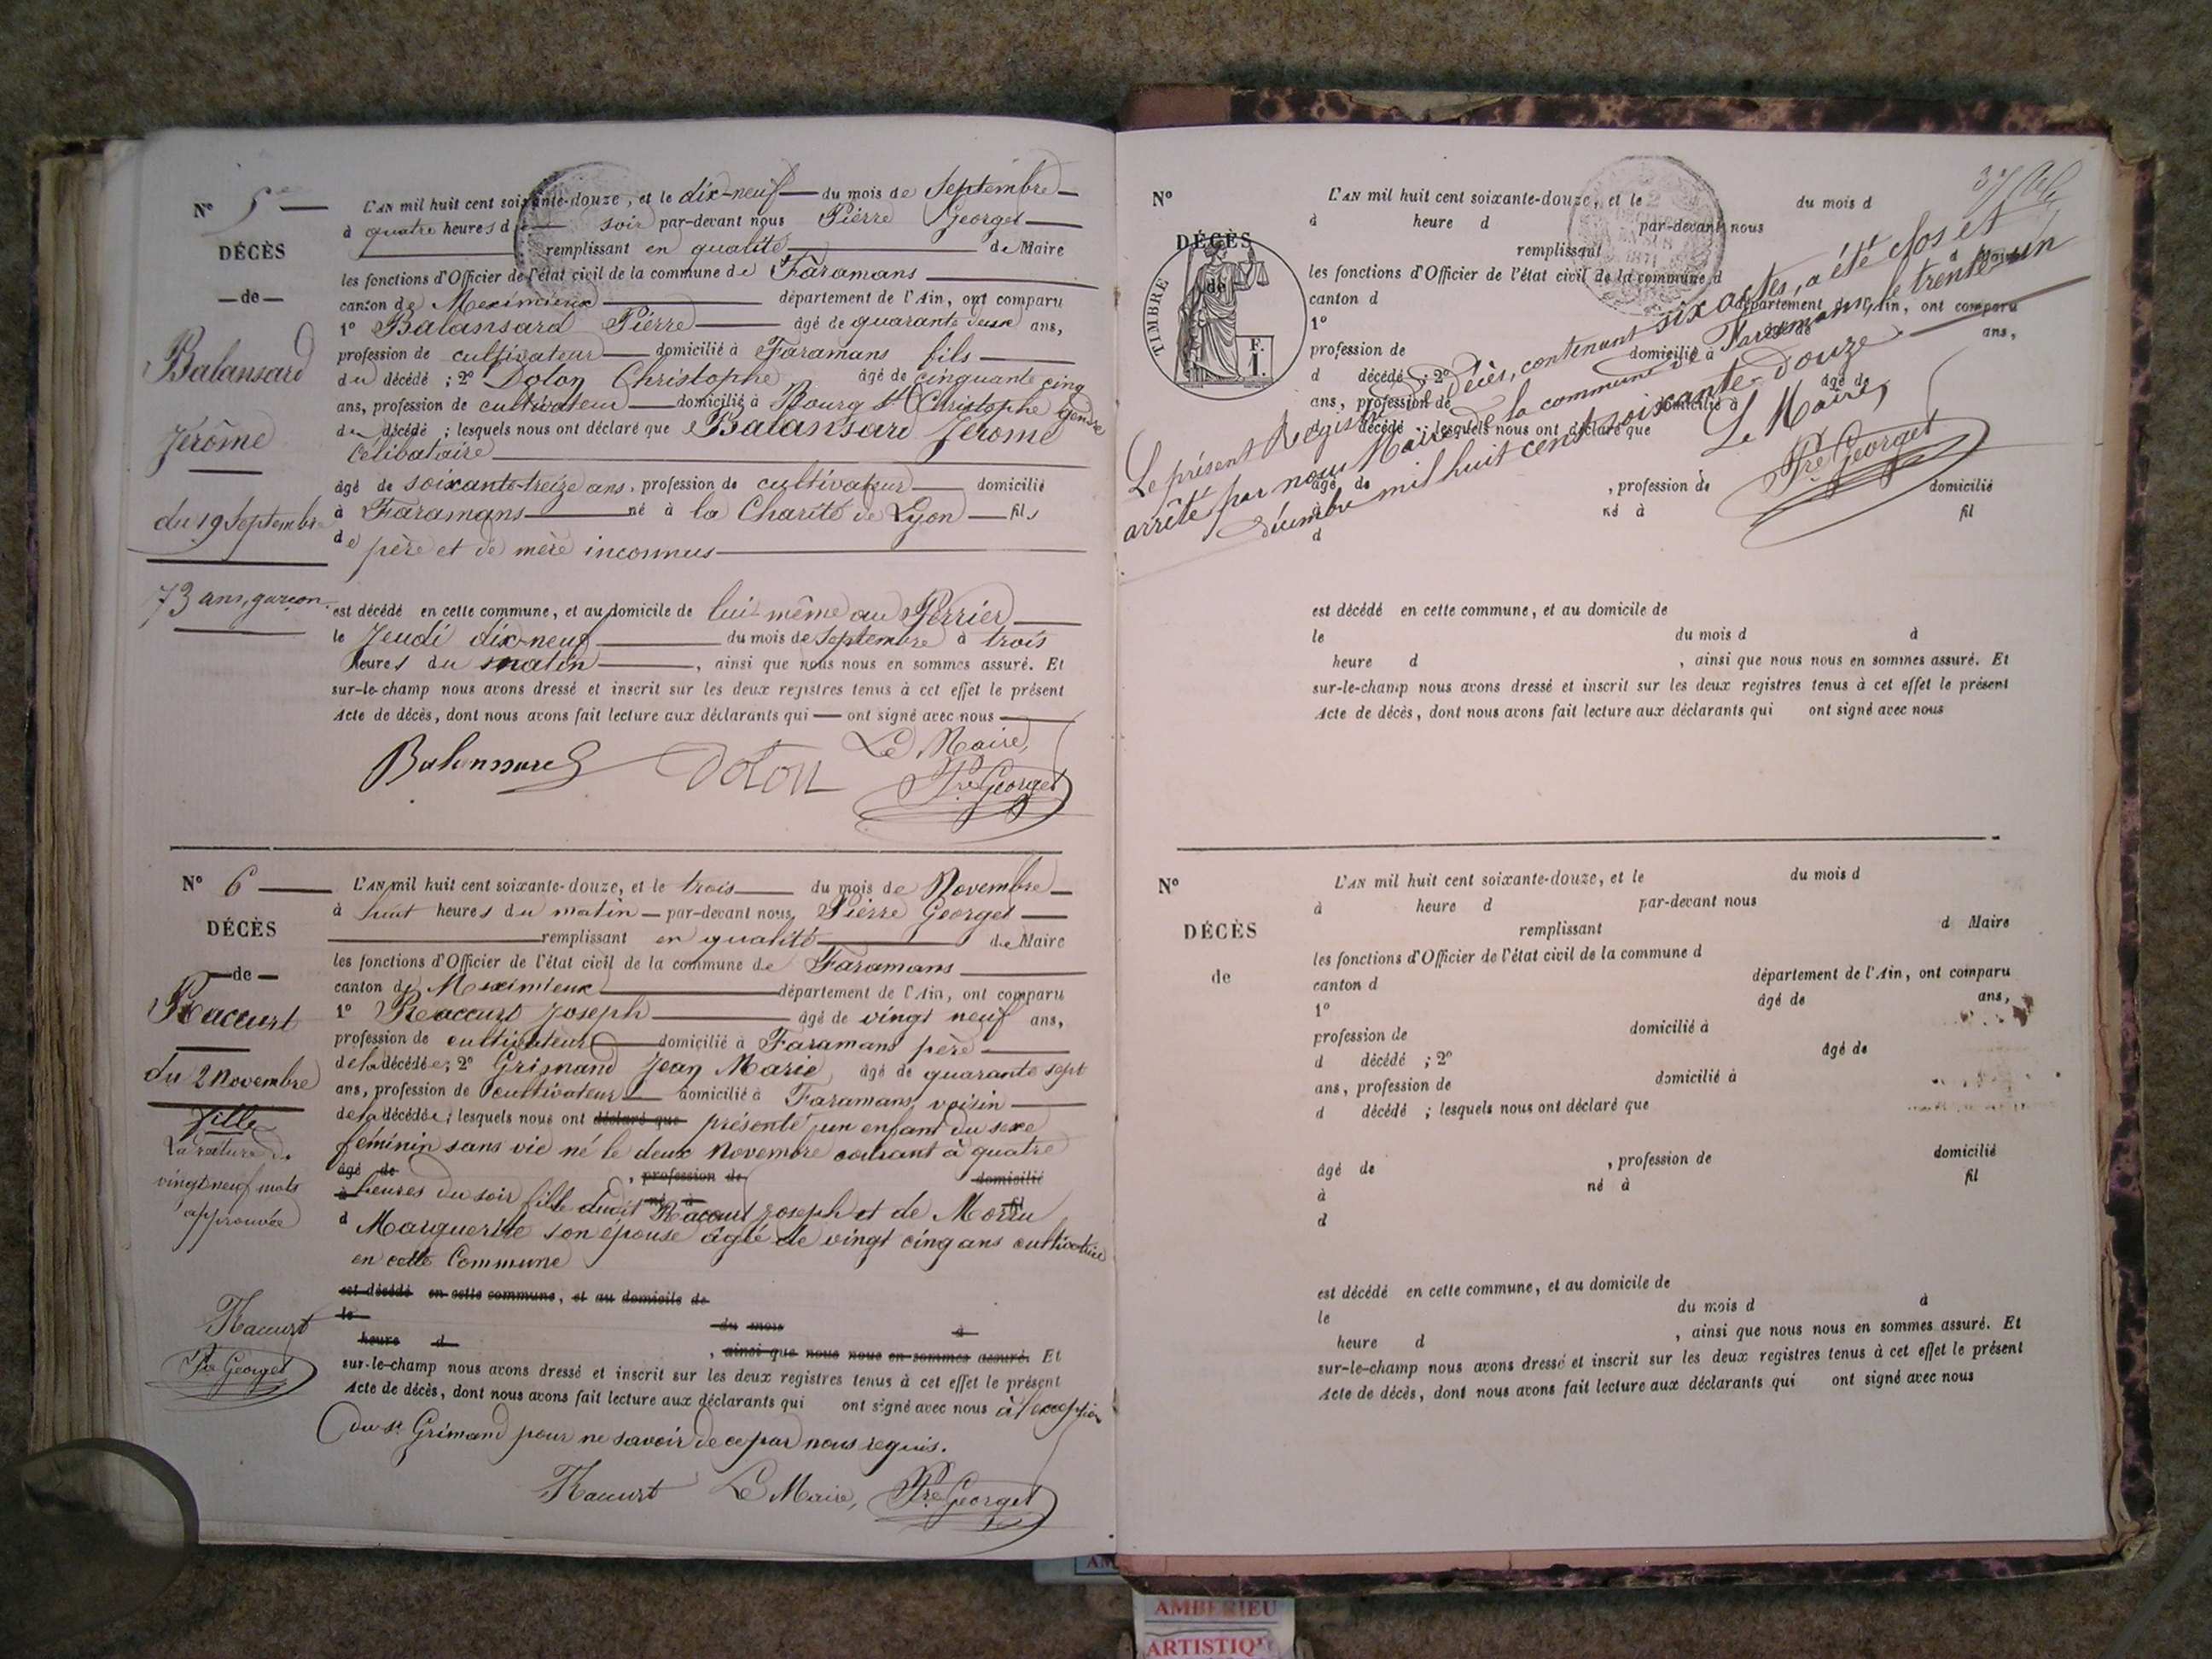 N° 5
DÉCÈS
de
Balansard
Jérôme
du 19 Septembre
73 ans, garçon.
L'AN mil huit cent soixante-douze, et le dix-neuf du mois de Septembre
à quatre heures du soir par-devant nous Pierre Georget
remplissant en qualité de Maire
les fonctions d'Officier de l'état civil de la commune de Faramans
canton de Meximieux département de l'Ain, ont comparu
1° Balansard Pierre âgé de quarante deux ans,
profession de cultivateur domicilié à Faramans fils
du décédé ; 2° Dolon Christophe âgé de cinquante cinq
ans, profession de cultivateur domicilié à Bourg St Christophe gendre
du décédé ; lesquels nous ont déclaré que Balansard Jérome
Célibataire
âgé de soixante-treize ans, profession de cultivateur domicilié
à Faramans né à la Charité de Lyon fils
de père et de mère inconnus
est décédé en cette commune, et au domicile de lui-même au Perrier
le Jeudi dix-neuf du mois de Septembre à trois
heures du matin, ainsi que nous nous en sommes assuré. Et
sur-le-champ nous avons dressé et inscrit sur les deux registres tenus à cet effet le présent
Acte de décès, dont nous avons fait lecture aux déclarants qui ont signé avec nous
Balansard Dolon Le Maire,
Pre Georget
N° 6
DÉCÈS
de
Raccurt
du 2 Novembre
fille
La rature de
vingt neuf mots
approuvée
Raccurt
Pre Georget
L'AN mil huit cent soixante-douze, et le trois du mois de Novembre
à huit heures du matin par-devant nous Pierre Georget
remplissant en qualité de Maire
les fonctions d'Officier de l'état civil de la commune de Faramans
canton de Meximieux département de l'Ain, ont comparu
1° Raccurt Joseph âgé de vingt neuf ans,
profession de cultivateur domicilié à Faramans père
de la décédée; 2° Grimand Jean Marie âgé de quarante sept
ans, profession de cultivateur domicilié à Faramans voisin
de la décédée; lesquels nous ont déclaré que présenté un enfant du sexe
féminin sans vie né le deux Novembre courant à quatre
âgé de , profession de domicilié
à heures du soir fille dudit Raccurt Joseph et de
né à fil
d Marguerite son épouse âgée de vingt cinq ans cultivatrice
en cette Commune
est décédé en cette commune, et au domicile de
le du mois à
heure d , ainsi que nous nous en sommes assuré. Et
sur-le-champ nous avons dressé et inscrit sur les deux registres tenus à cet effet le présent
Acte de décès, dont nous avons fait lecture aux déclarants qui ont signé avec nous à l'exception
du sr Grimand pour ne savoir de ce par nous requis.
Raccurt Le Maire, Pre Georget
N°
DÉCÈS
de
TIMBRE
F.
1.
L'AN mil huit cent soixante-douze, et le du mois d
à heure d par-devant nous
remplissant d Maire
les fonctions d'Officier de l'état civil de la commune d
canton d département de l'Ain, ont comparu
1° âgé de ans,
profession de domicilié à
d décédé ; 2° âgé de
ans, profession de domicilié à
d décédé ; lesquels nous ont déclaré que
Le présent Registre de décès, contenant six actes, a été clos et
arrêté par nous Maire de la commune de Faramans, le trente-un
décembre mil huit cent soixante-douze.
Le Maire,
Pre Georget
âgé de , profession de domicilié
à né à fil
d
est décédé en cette commune, et au domicile de
le du mois d à
heure d , ainsi que nous nous en sommes assuré. Et
sur-le-champ nous avons dressé et inscrit sur les deux registres tenus à cet effet le présent
Acte de décès, dont nous avons fait lecture aux déclarants qui ont signé avec nous
N°
DÉCÈS
de
L'AN mil huit cent soixante-douze, et le du mois d
à heure d par-devant nous
remplissant d Maire
les fonctions d'Officier de l'état civil de la commune d
canton d département de l'Ain, ont comparu
1° âgé de ans,
profession de domicilié à
d décédé ; 2° âgé de
ans, profession de domicilié à
d décédé ; lesquels nous ont déclaré que
âgé de , profession de domicilié
à né à fil
d
est décédé en cette commune, et au domicile de
le du mois d à
heure d , ainsi que nous nous en sommes assuré. Et
sur-le-champ nous avons dressé et inscrit sur les deux registres tenus à cet effet le présent
Acte de décès, dont nous avons fait lecture aux déclarants qui ont signé avec nous
AMBERIEU
ARTISTIQ